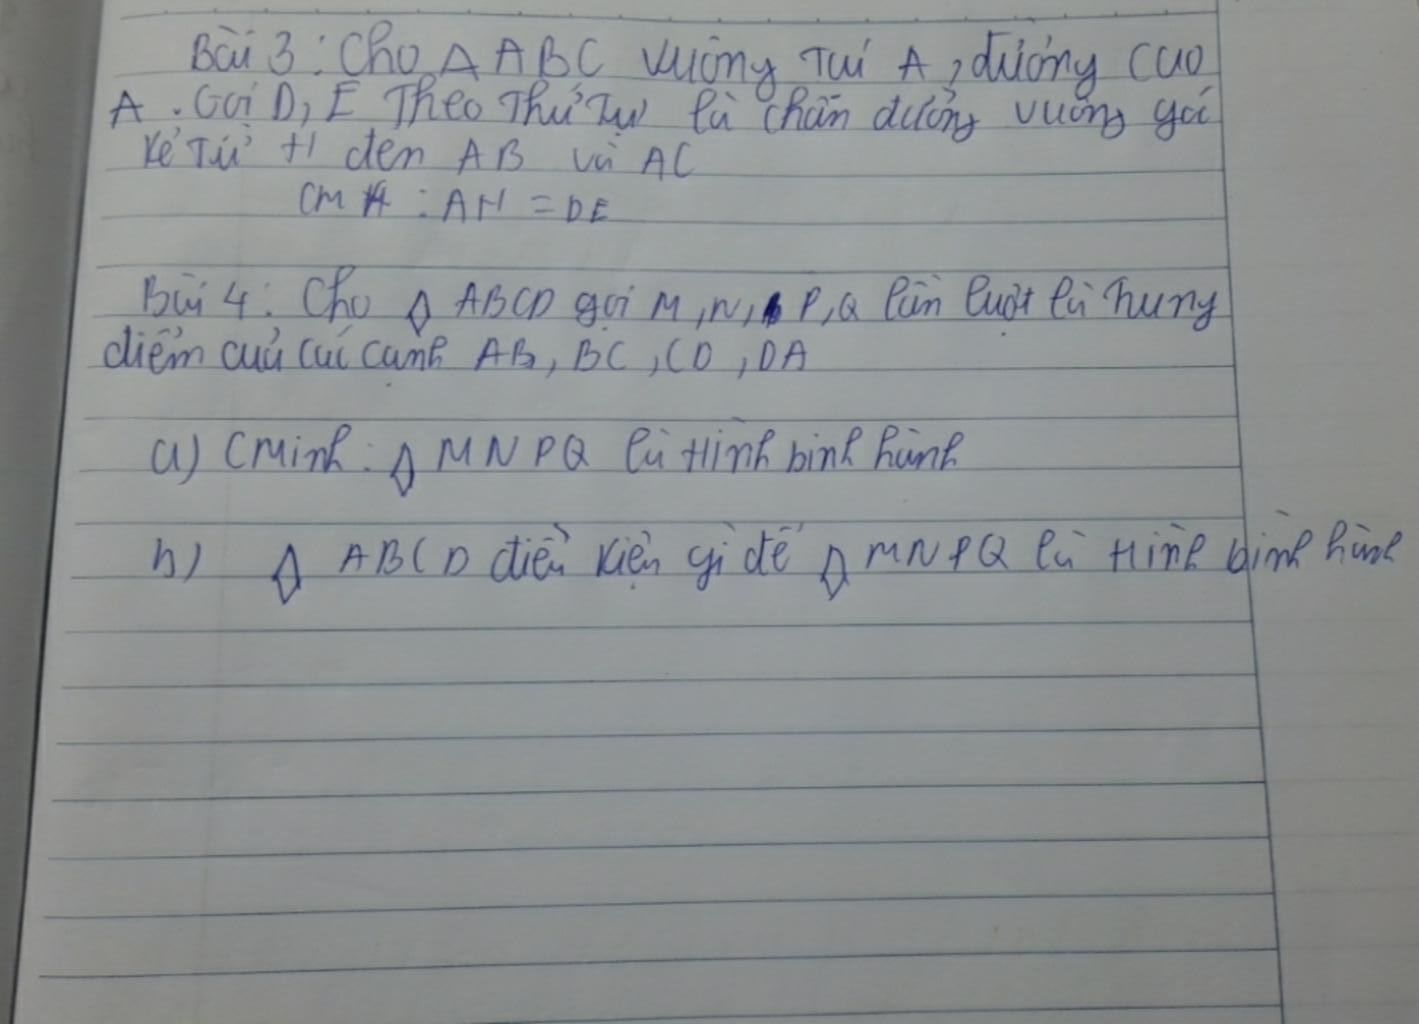 Bài 3: Cho Δ ABC vuông tại A, đường cao
A. Gọi D, E Theo Thứ Tự là chân đường vuông góc
Kẻ Từ H đến AB và AC
CM : AH = DE
Bài 4: Cho ◊ ABCD gọi M, N, P, Q lần lượt là trung
điểm của các cạnh AB, BC, CD, DA
a) CMinh: ◊ MNPQ là Hình bình hành
b) ◊ ABCD điều kiện gì để ◊ MNPQ là Hình bình hành